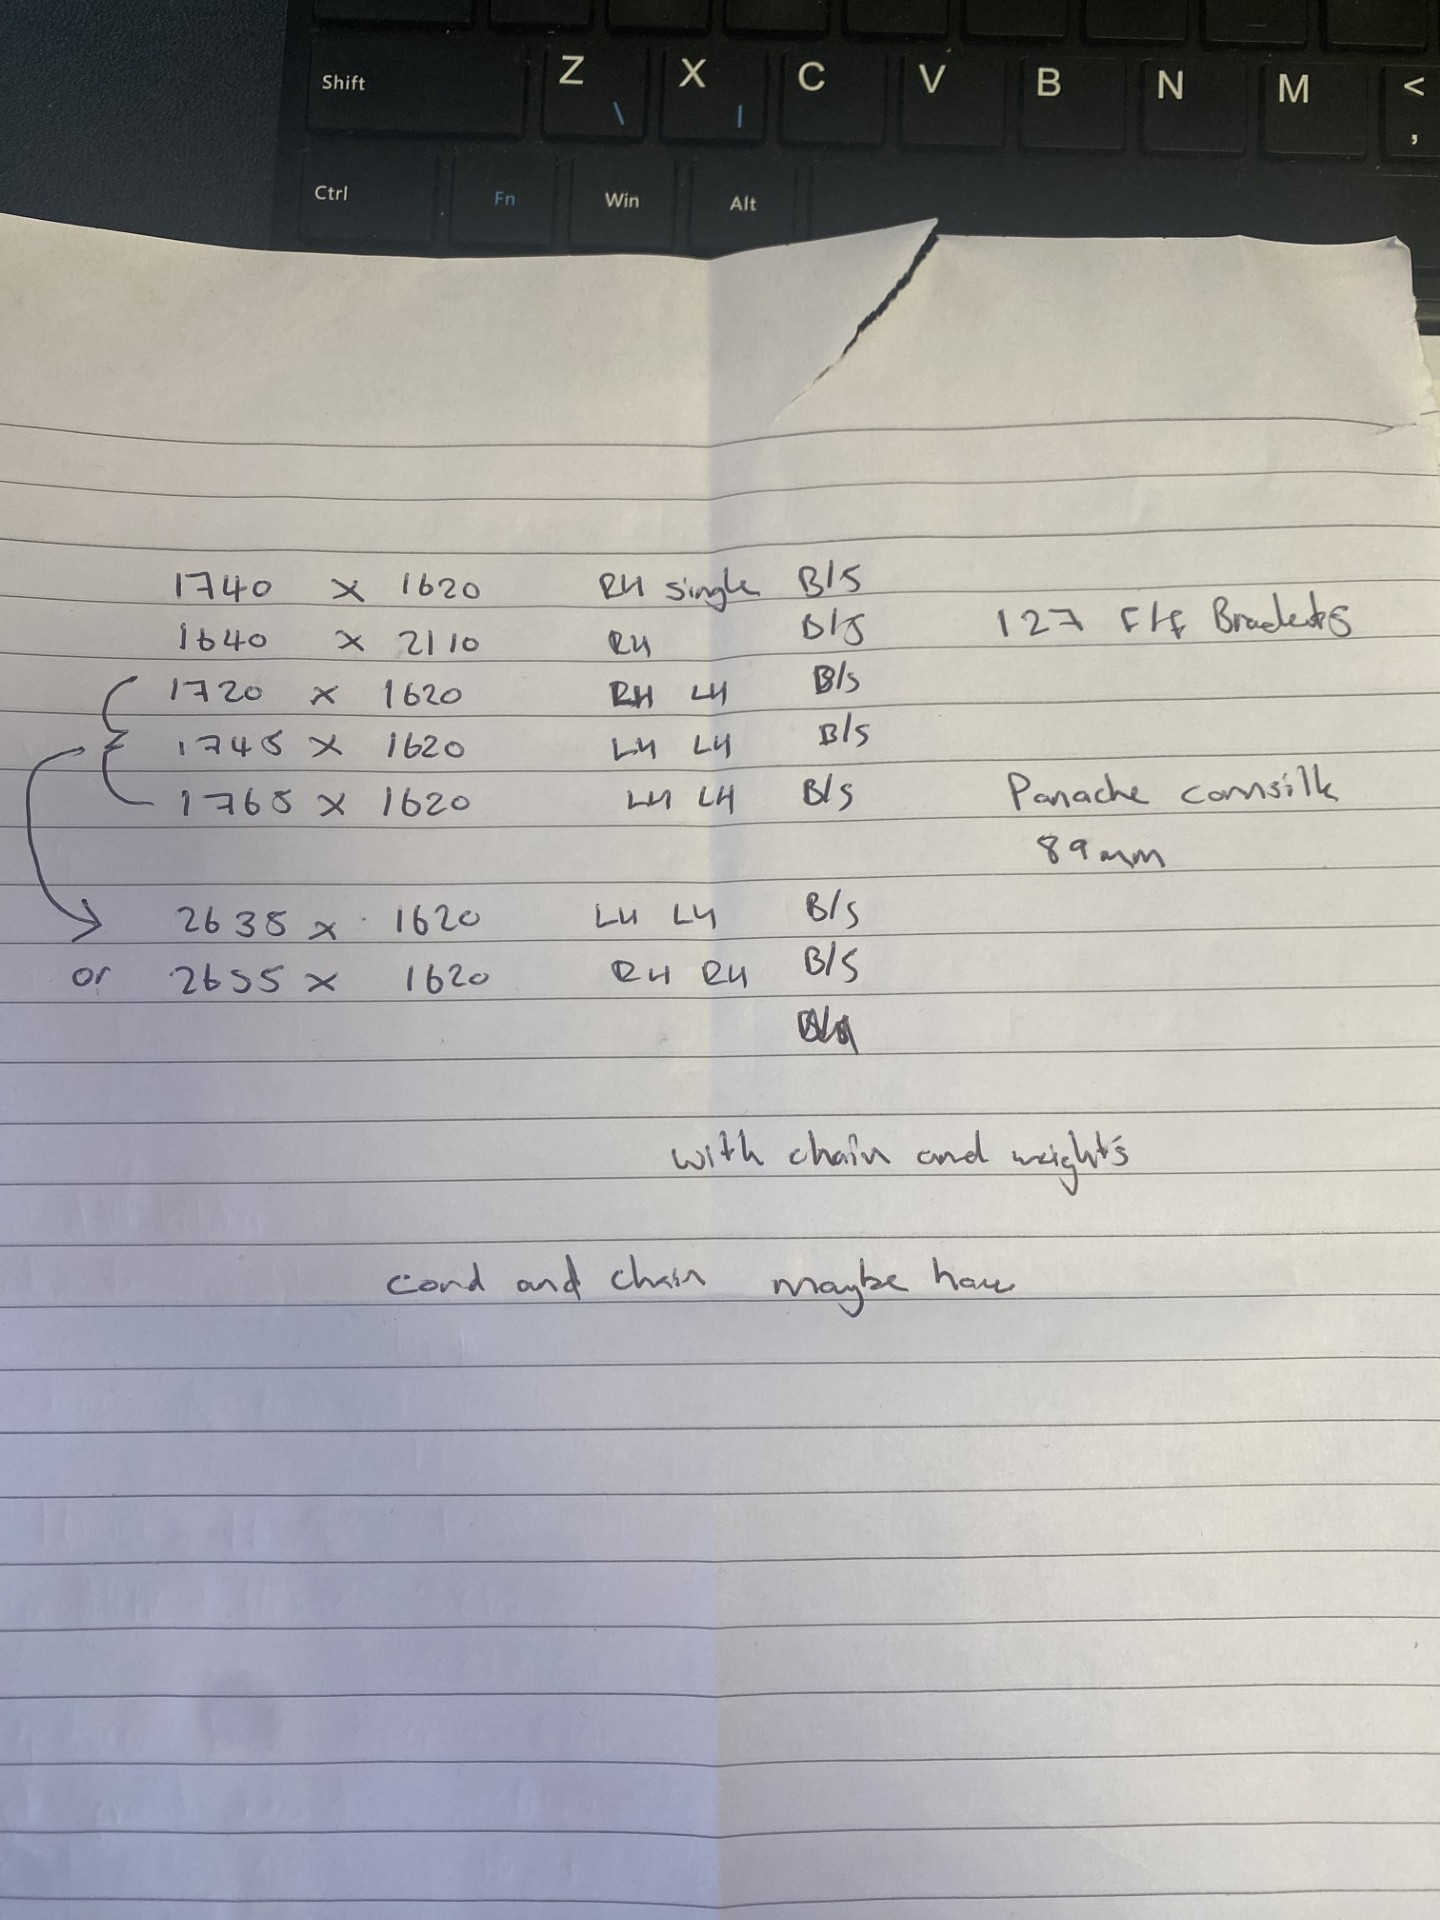 Shift Z \ X | C V B N M < ,
Ctrl Fn Win Alt
1740 x 1620 RH single B/S
1640 x 2110 RH B/S 127 F/f Brackets
1720 x 1620 RH LH B/S
1745 x 1620 LH LH B/S
1765 x 1620 LH LH B/S Panache cornsilk
89mm
2635 x 1620 LH LH B/S
or 2655 x 1620 RH RH B/S
with chain and weights
cord and chain maybe have